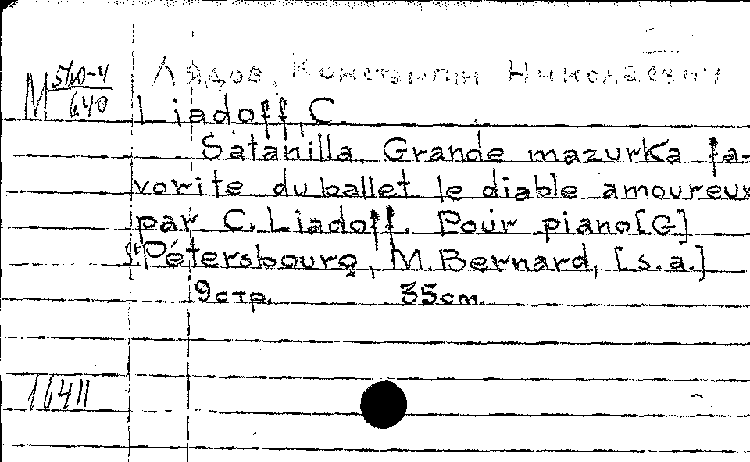 Лядов, Константин Николаевич
М 570-4
640
Liadoff, C.
Satanilla. Grande mazurka fa-
vorite du ballet le diable amoureux
par C. Liadoff. Pour piano [G]
S<sup>t</sup> Pétersbourg, M. Bernard, [s.a.]
9 стр. 35 cm.
16411